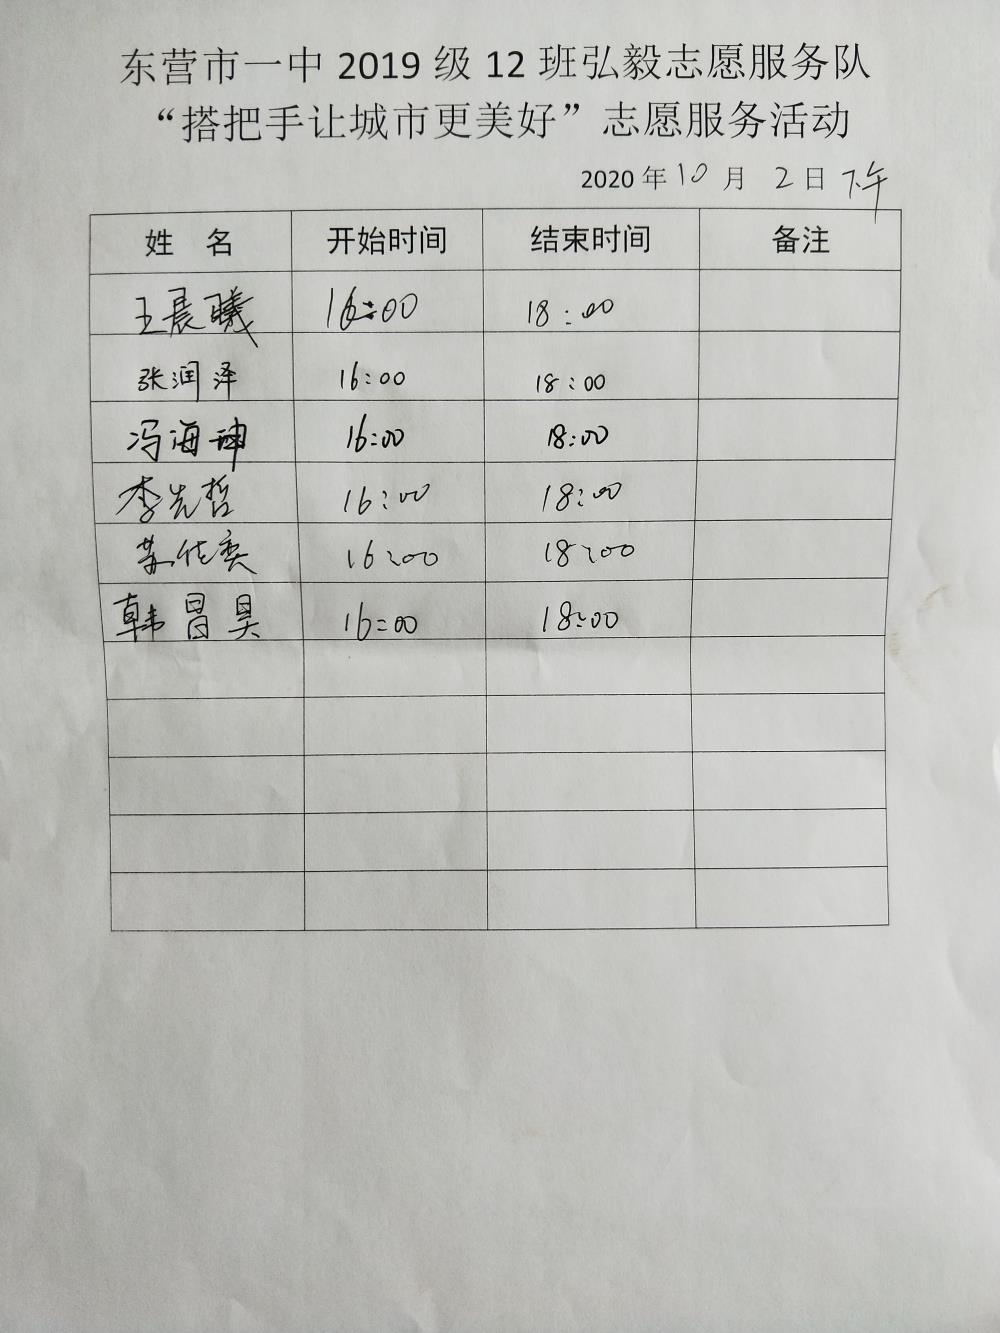 东营市一中 2019 级 12 班弘毅志愿服务队
“搭把手让城市更美好”志愿服务活动
2020 年 10 月 2 日 下午
姓 名 开始时间 结束时间 备注
王晨曦 16:00 18:00
张润泽 16:00 18:00
冯海坤 16:00 18:00
李先哲 16:00 18:00
苏佳奕 16:00 18:00
韩昌昊 16:00 18:00